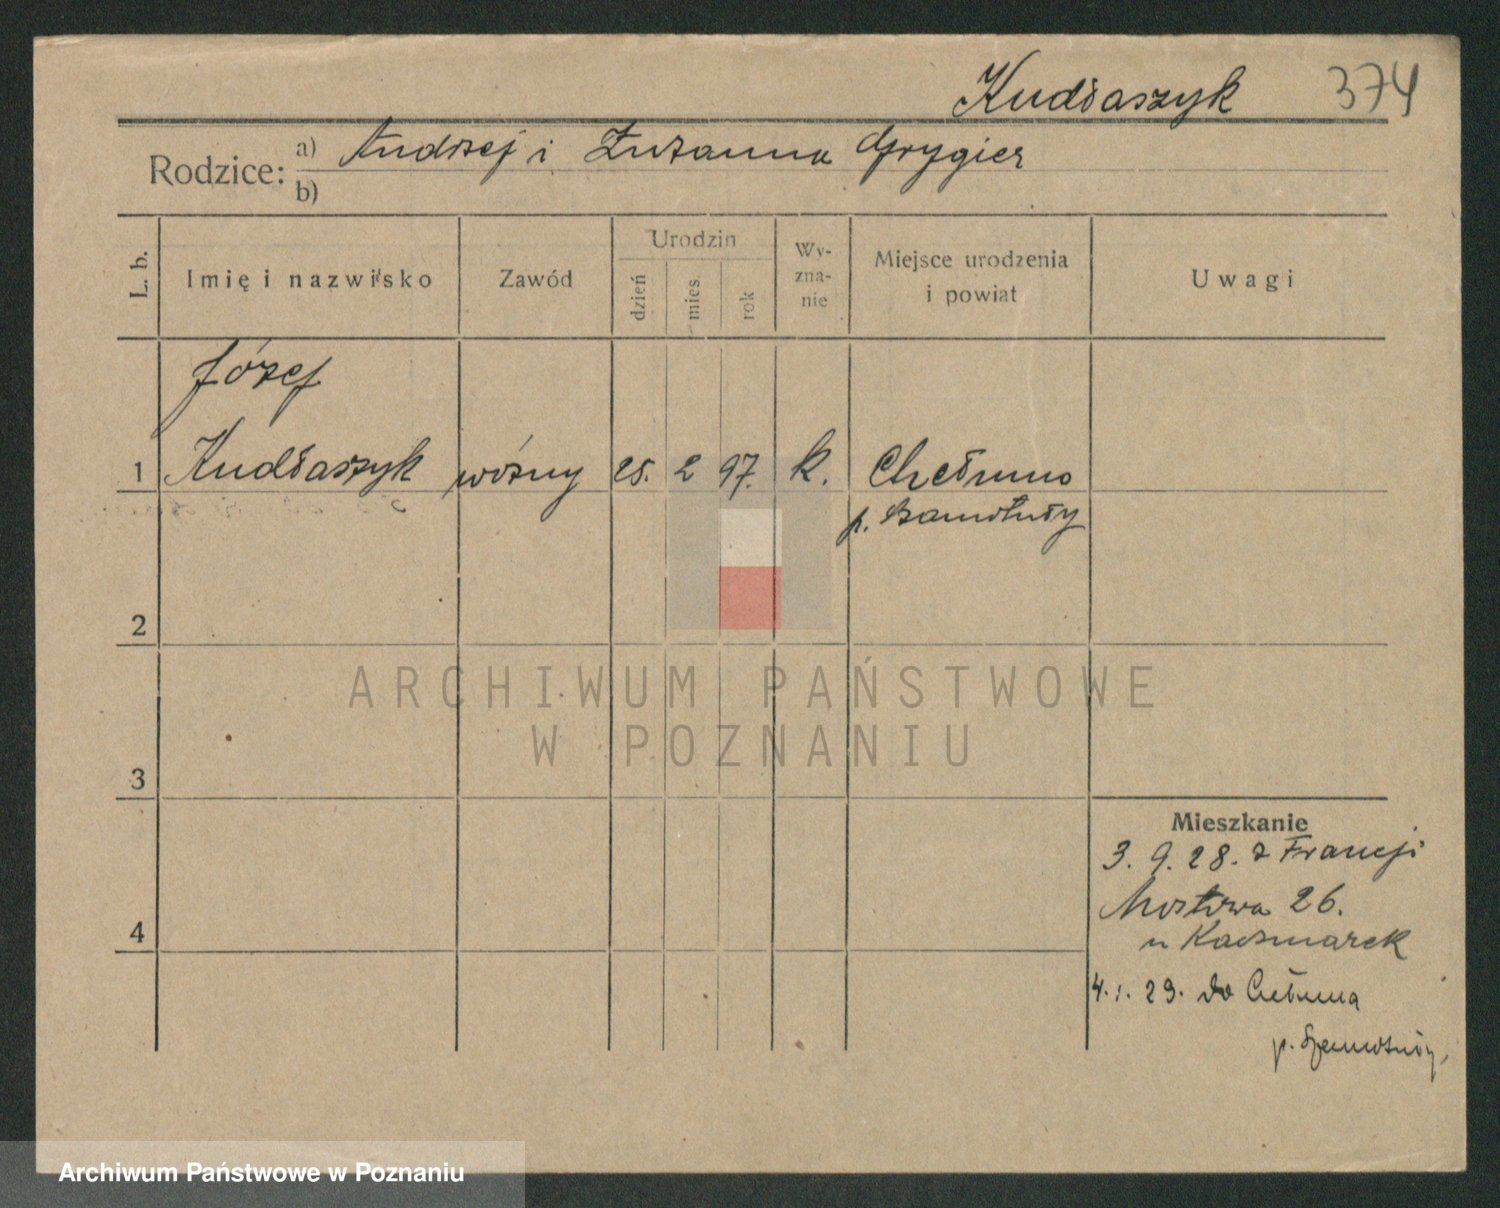 Kudłaszyk 374
Rodzice: a) Andrzej i Zuzanna Grygier
b)
L. b. Imię i nazwisko Zawód Urodzin dzień mies. rok Wy-zna-nie Miejsce urodzenia i powiat Uwagi
Józef
1 Kudłaszyk woźny 25. 2 97. k. Chełmno
p. Szamotuły
2
ARCHIWUM PAŃSTWOWE
W POZNANIU
3
Mieszkanie
3. 9. 28. z Francji
Mostowa 26.
4
u Kaczmarek
4. 1. 29. do Chełmna
p. Szamotuły,
Archiwum Państwowe w Poznaniu